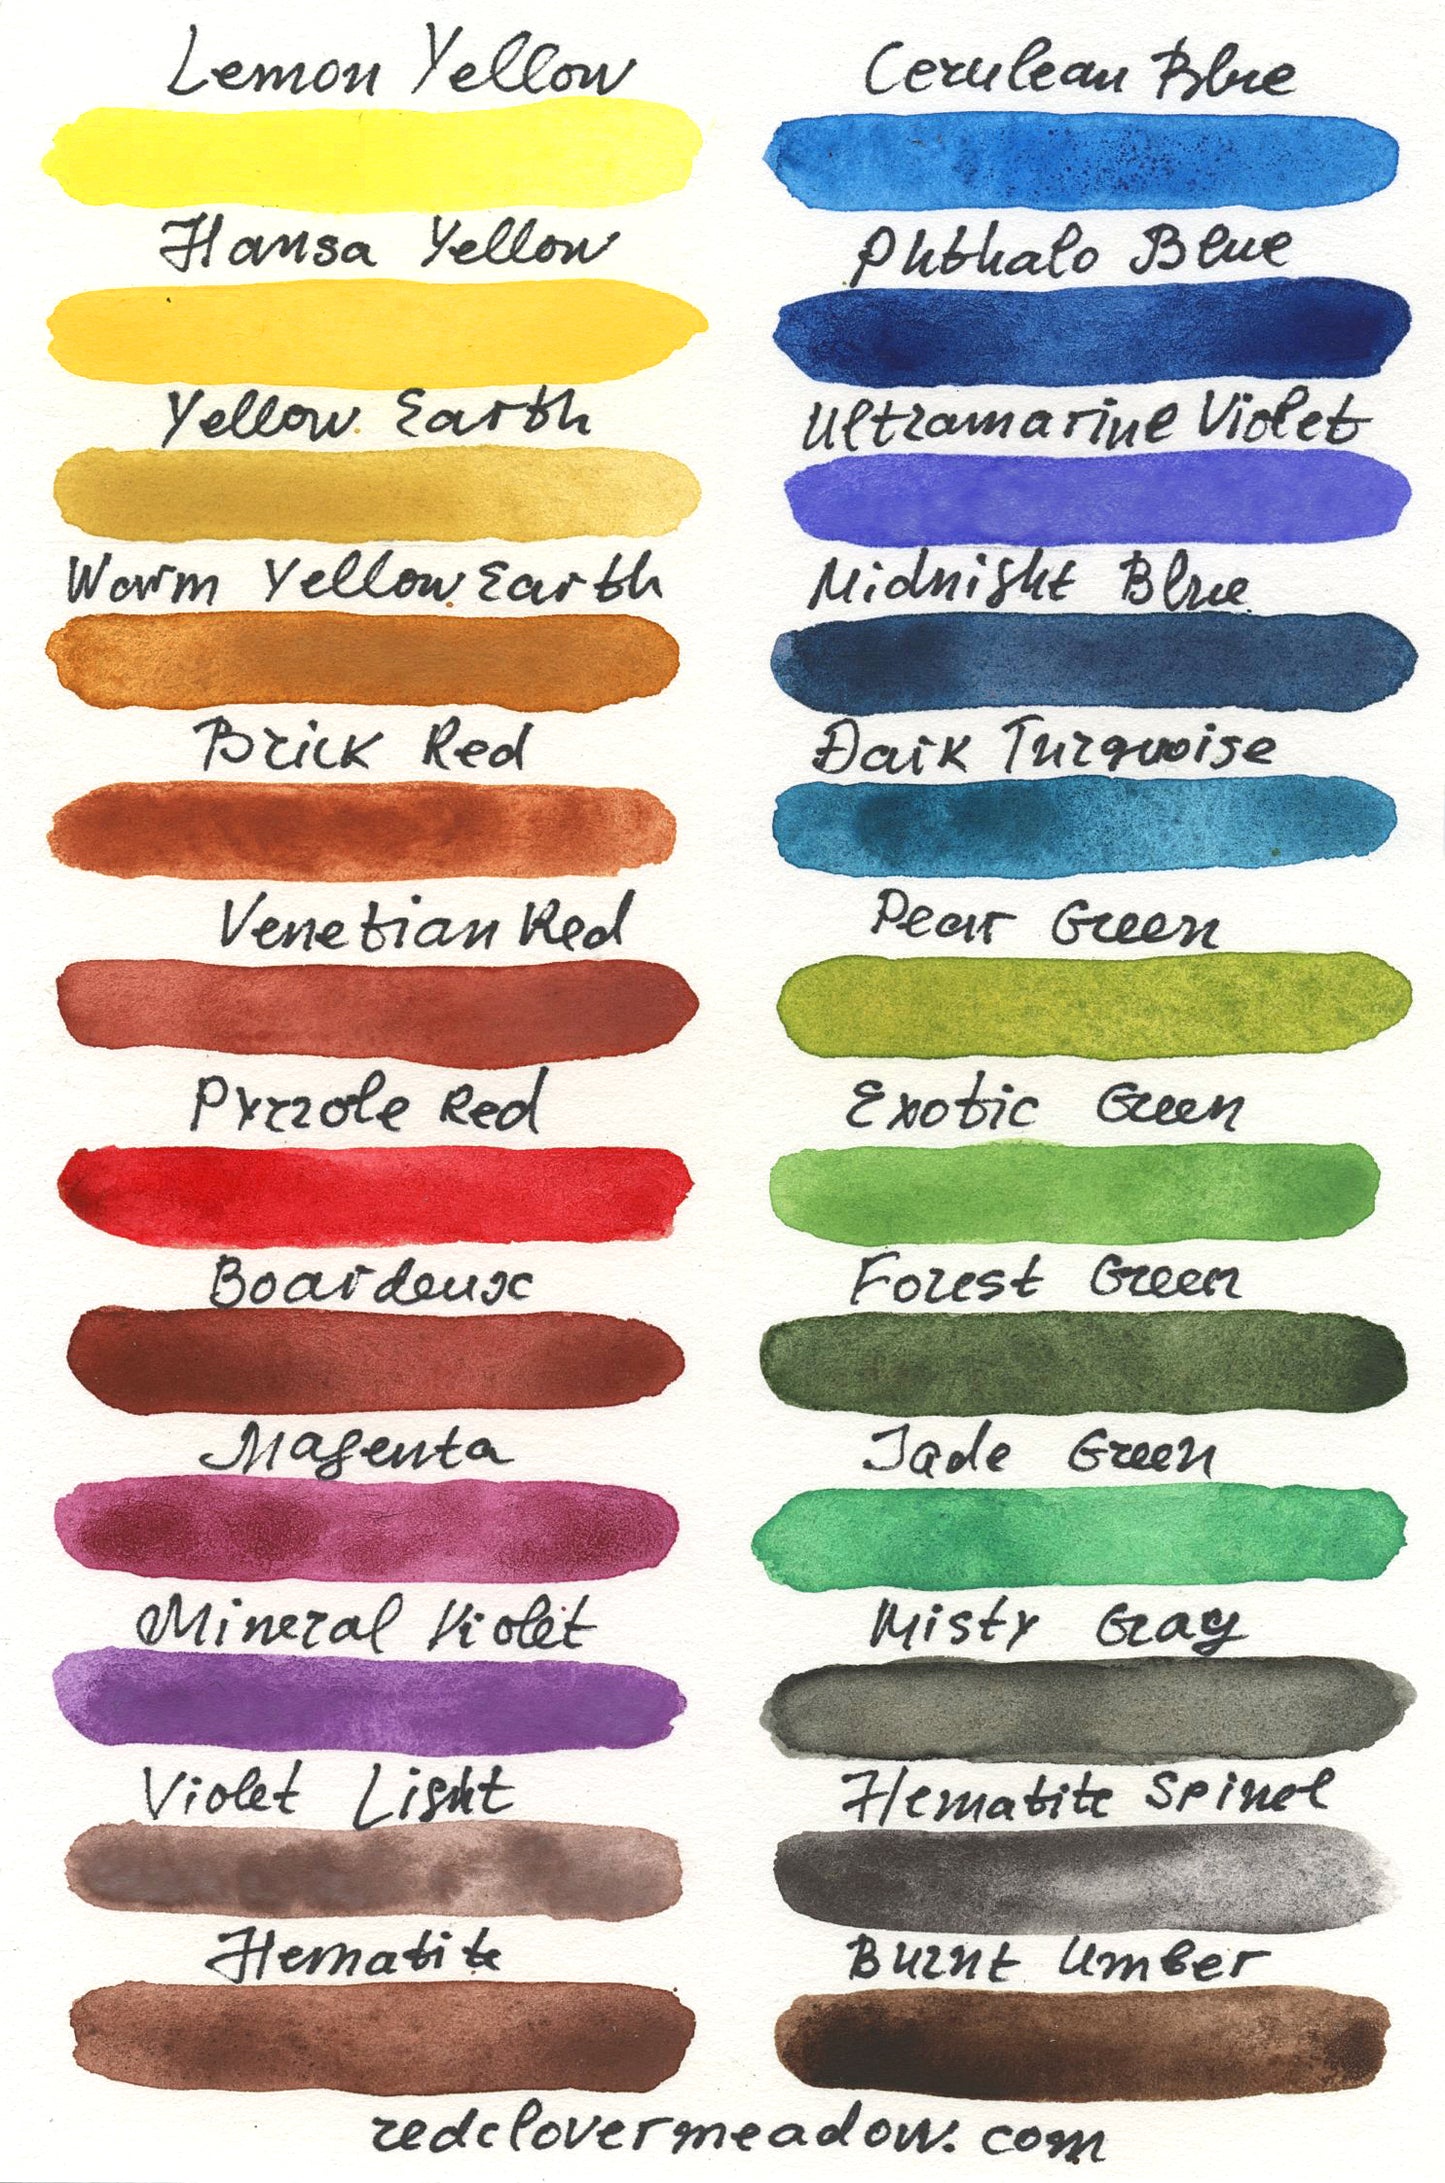 Lemon Yellow
Hansa Yellow
Yellow Earth
Warm Yellow Earth
Brick Red
Venetian Red
Pyrrole Red
Boardeux
Magenta
Mineral Violet
Violet Light
Hematite
Cerulean Blue
Phthalo Blue
Ultramarine Violet
Midnight Blue
Dark Turquoise
Pear Green
Exotic Green
Forest Green
Jade Green
Misty Gray
Hematite Spinel
Burnt Umber
redclovermeadow.com